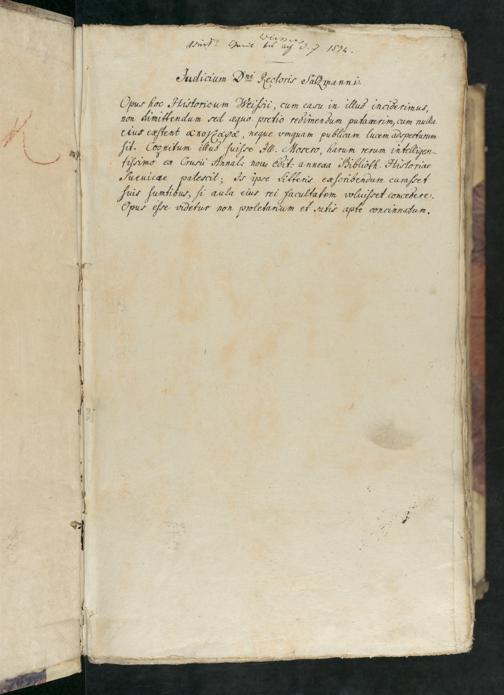 bis auf d. J. 1592.
Judicium Dni Rectoris Salzmanni.
Opus hoc Historicum Weisii, cum casu in illud inciderimus,
non dimittendum sed æquo pretio redimendum putaverim, cum nulla
eius exstent ἀπόγραφα, neque unquam publicam lucem adspectarum
sit. Cognitum illud fuisse Ill. Mosero, harum rerum intelligen-
tissimo ex Crusii Annal. novæ Edit. annexa Biblioth. Historiae
Suevicae patescit; Is ipse litteris exscribendum curasset
suis sumtibus, si aula eius rei facultatem voluisset concedere.
Opus esse videtur non proletarium et satis apte concinnatum.